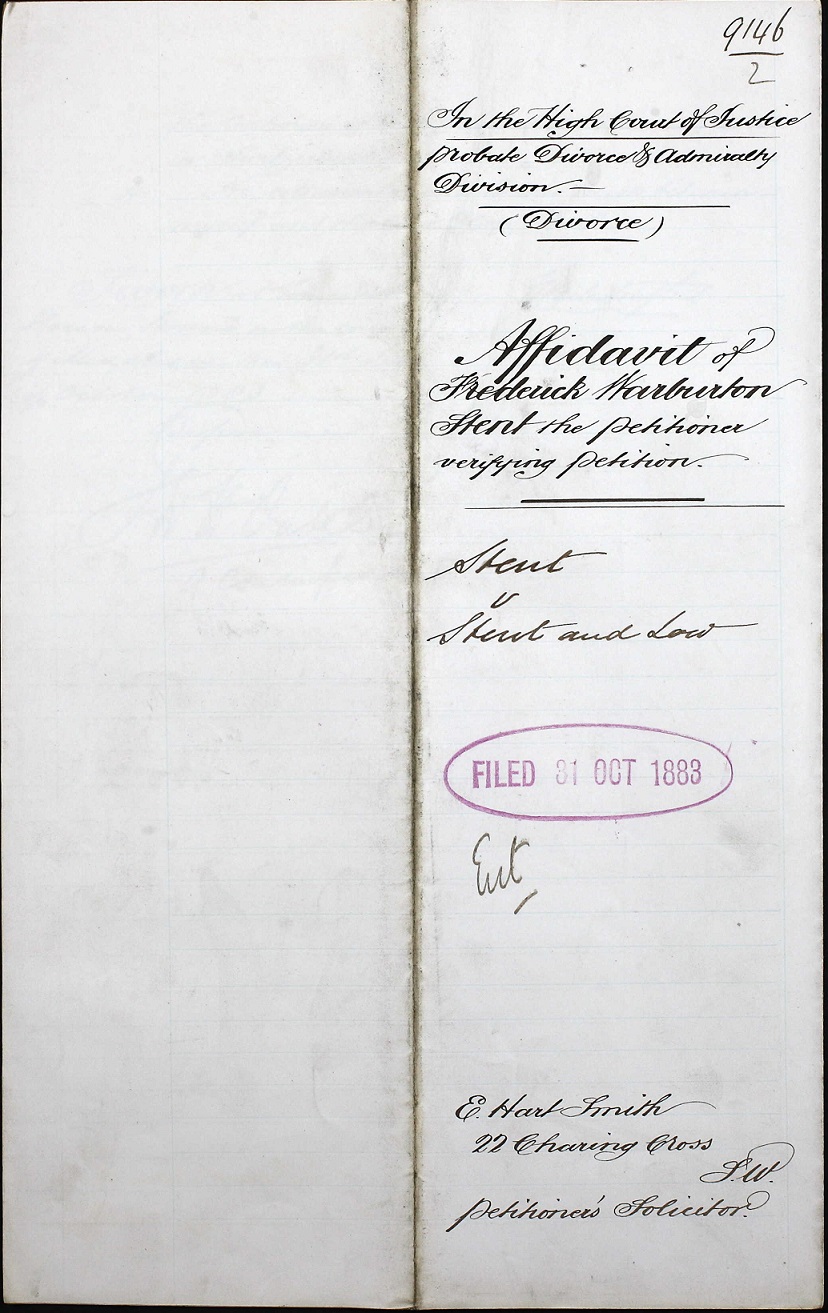 9146
2
In the High Court of Justice
Probate Divorce & Admiralty
Division. —
(Divorce)
Affidavit of
Frederick Warburton
Stent the Petitioner
verifying Petition.
Stent
v
Stent and Low
FILED 31 OCT 1883
Ent,
E. Hart Smith
22 Charing Cross
S.W.
Petitioner's Solicitor.